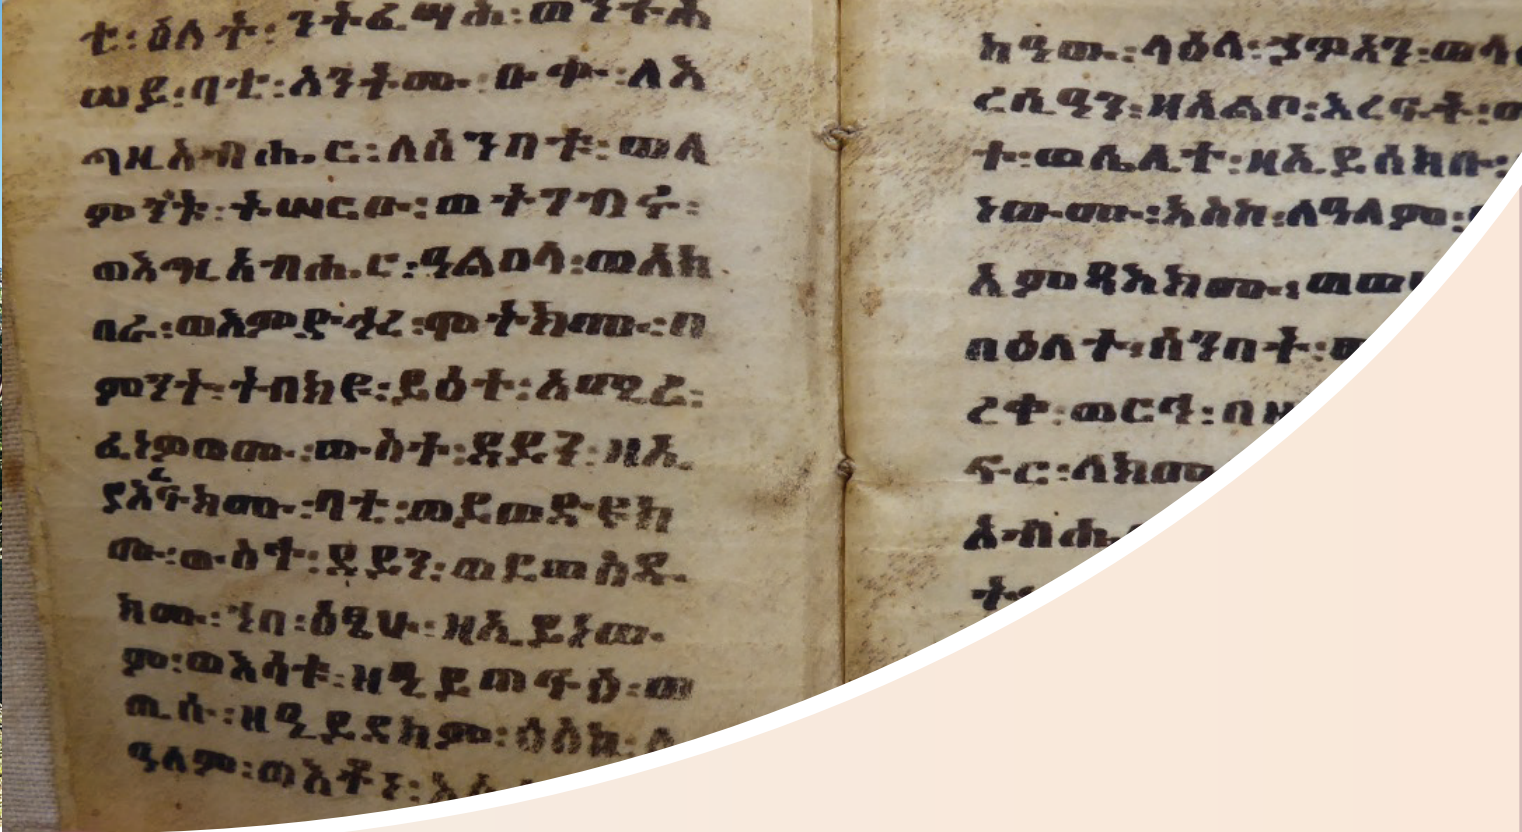 ቲ፡ዕለት፡ንትፌሣሕ፡ወንትሐ
ሠይ፡ባቲ፡አንትሙ፡ዑቁ፡ለእ
ግዚአብሔር፡ለሰንበቱ፡ወለ
ምንት፡ትሠርዑ፡ወትገብሩ፡
ወእግዚአብሔር፡ዓልዐላ፡ወአክ
በራ፡ወእምድኅረ፡ሞትክሙ፡በ
ምንት፡ትበክዩ፡ይዕተ፡አሚረ፡
ውስተ፡ደይን፡ዘኢ
ያእረፍክሙ፡ባቲ፡ወይወድዩክ
ሙ፡ውስተ፡ደይን፡ወይወስዱ
ክሙ፡ኀበ፡ዕፄሁ፡ዘኢይነው
ም፡ወእሳቱ፡ዘኢይጠፍዕ፡ወ
ጢሱ፡ዘኢይደክም፡እስከ፡ለ
ዓለም፡ወእቶኑ፡
ላዕለ፡ኃጥእን፡ወላ
ረሲዓን፡ዘአልቦ፡እረፍት፡
ተ፡ወሌሊተ፡ዘኢይሰክቡ፡
ነውሙ፡እስከ፡ለዓለም፡
በዕለተ፡ሰንበት፡
ፍር፡ለክሙ
አብሔ